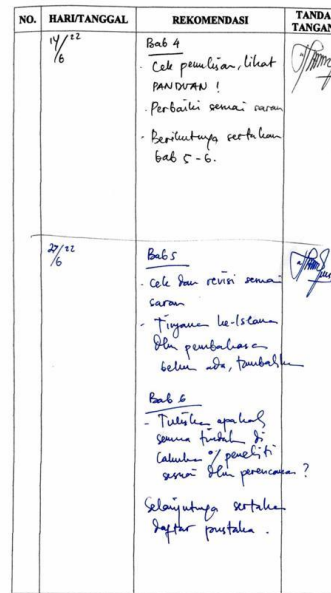 NO. HARI/TANGGAL REKOMENDASI TANDA TANGAN
14/22
6
Bab 4
- Cek penulisan, lihat
PANDUAN !
- Perbaiki sesuai saran
- Berikutnya sertakan
bab 5-6.
27/22
6
Bab 5
- cek dan revisi sesuai
saran
- Tinjauan ke-Islaman
dlm pembahasan
belum ada, tambahkan
Bab 6
- Tuliskan apakah
semua tindakan di
lakukan o/ peneliti
sesuai dlm perencanaan ?
Selanjutnya sertakan
daftar pustaka .